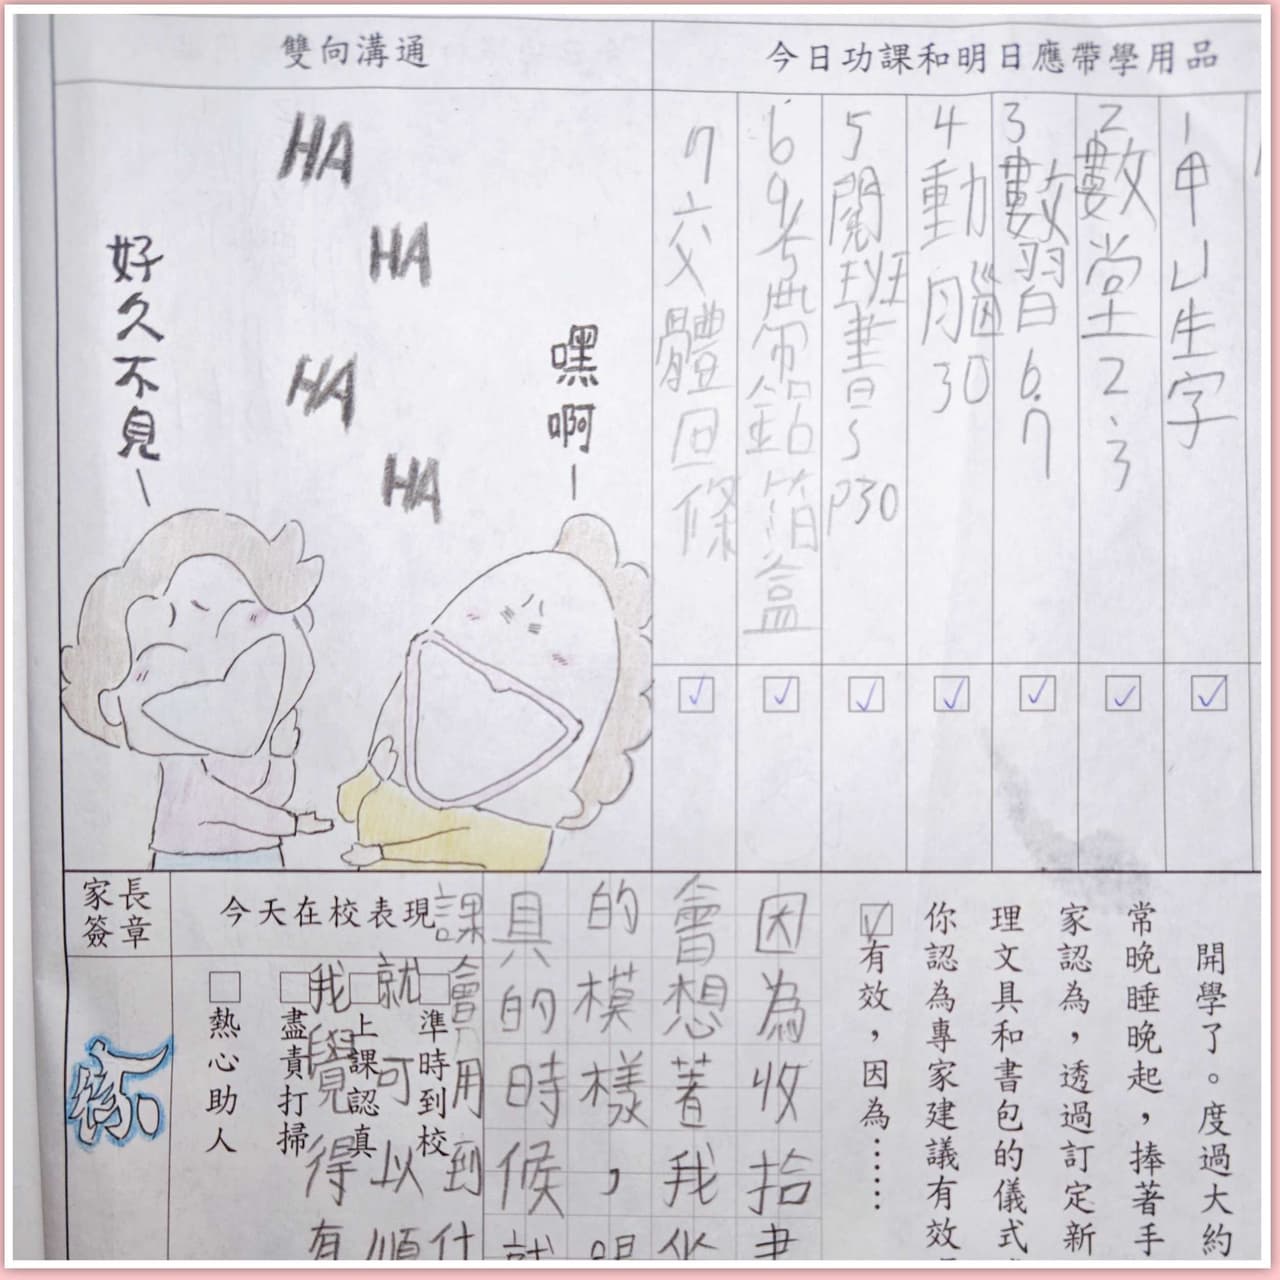 今日功課和明日應帶學用品
1甲 生字
2數堂2、3
3數習6.7
4動腦30
5閱班書 P30
6 9/5 帶鋁箔盒
7交體回條
雙向溝通
HA
HA
HA
HA
嘿啊~
好久不見~
開學了。度過大約
常晚睡晚起，捧著手
家認為，透過訂定新
理文具和書包的儀式
你認為專家建議有效
有效，因為……
因為收拾書
會想著我
的模樣，
具的時候就
課會用到什
就可以順
我覺得有
今天在校表現
準時到校
上課認真
盡責打掃
熱心助人
家長簽章